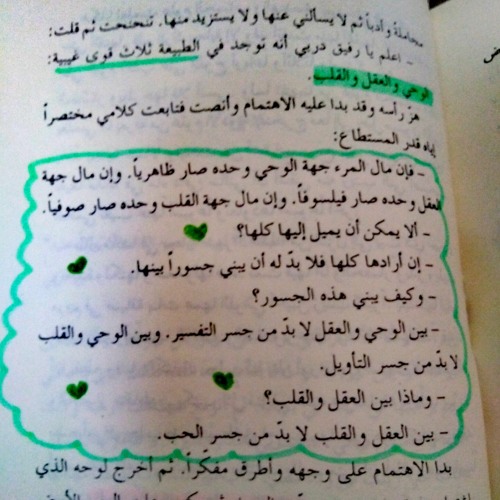 مجاملةً وأدباً ثم لا يسألني عنها ولا يستزيد منها. تنحنحت ثم قلت:
- اعلم يا رفيق دربي أنه توجد في الطبيعة ثلاث قوى غيبية:
الوحي والعقل والقلب.
هز رأسه وقد بدا عليه الاهتمام وأنصت فتابعت كلامي مختصراً
إياه قدر المستطاع:
- فإن مال المرء جهة الوحي وحده صار ظاهرياً. وإن مال جهة
العقل وحده صار فيلسوفاً. وإن مال جهة القلب وحده صار صوفياً.
- ألا يمكن أن يميل إليها كلها؟
- إن أرادها كلها فلا بدّ له أن يبني جسوراً بينها.
- وكيف يبني هذه الجسور؟
- بين الوحي والعقل لا بدّ من جسر التفسير. وبين الوحي والقلب
لا بدّ من جسر التأويل.
- وماذا بين العقل والقلب؟
- بين العقل والقلب لا بدّ من جسر الحب.
بدا الاهتمام على وجهه وأطرق مفكّراً. ثم أخرج لوحه الذي